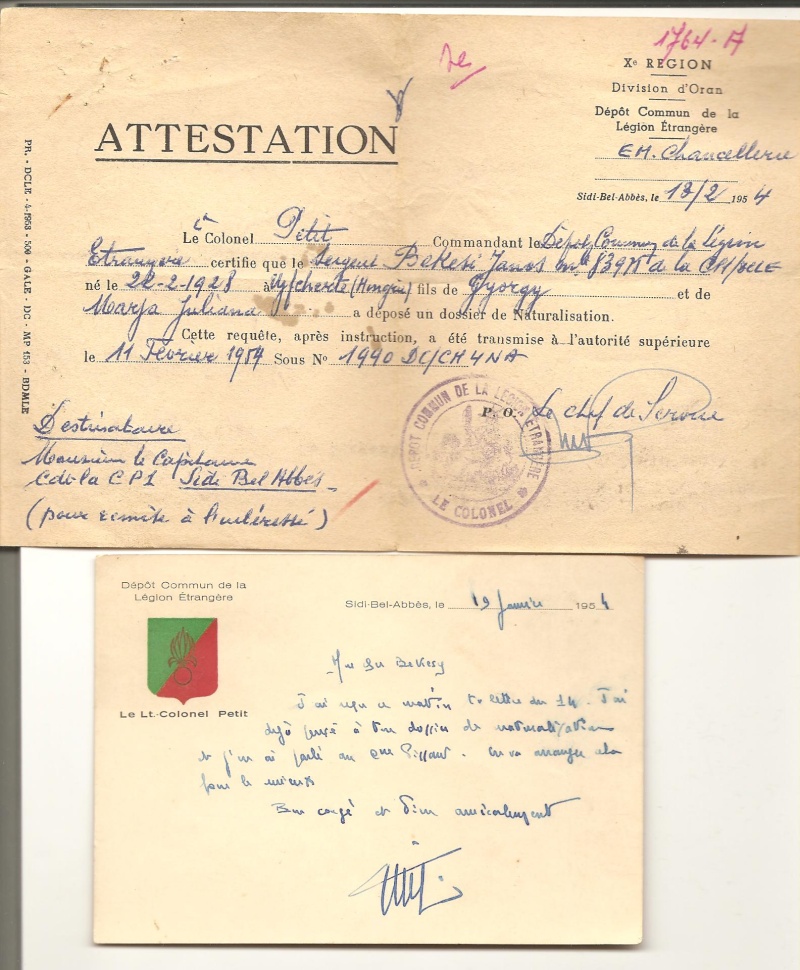 1764-A
Xe REGION
Division d'Oran
Dépôt Commun de la
Légion Étrangère
EM. Chancellerie
Sidi-Bel-Abbès, le 13/2 1954
ATTESTATION
PR. - DCLE - 4-1953 - 500 - GALE - DC - MP 153 - BDMLE
Le Lt Colonel Petit Commandant le Dépôt Commun de la Légion
Etrangère certifie que le Sergent Bekesi Janos de la
né le 22-2-1928 à (Hongrie) fils de György et de
Marja Juliana a déposé un dossier de Naturalisation.
Cette requête, après instruction, a été transmise à l'autorité supérieure
le 11 Février 1954 Sous N° 1990 DC/CH4NA
P. O. Le chef de Service
DEPOT COMMUN DE LA LEGION ETRANGERE
LE COLONEL
Destinataire
Monsieur le Capitaine
Cdt la CP1 Sidi Bel Abbès
(pour remise à l'intéressé)
Dépôt Commun de la
Légion Étrangère
Sidi-Bel-Abbès, le 19 Janvier 1954
Le Lt.-Colonel Petit
Mon cher Bekesy
J'ai reçu ce matin ta lettre du 14. J'ai
déjà pensé à ton dossier de naturalisation
et j'en ai parlé au Pissant. On va arranger cela
pour le mieux
Bon congé et bien amicalement
à